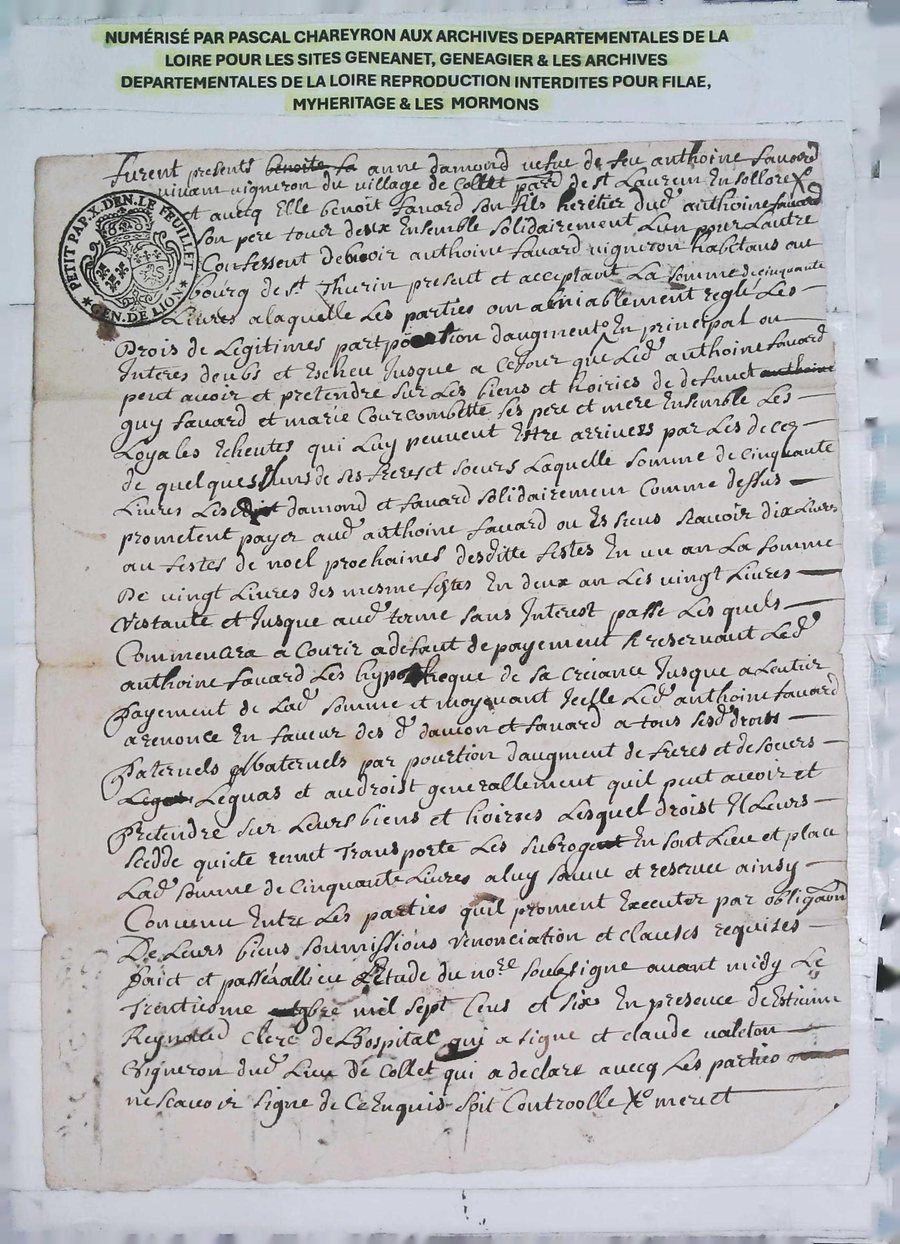 NUMÉRISÉ PAR PASCAL CHAREYRON AUX ARCHIVES DEPARTEMENTALES DE LA
LOIRE POUR LES SITES GENEANET, GENEAGIER & LES ARCHIVES
DEPARTEMENTALES DE LA LOIRE REPRODUCTION INTERDITES POUR FILAE,
MYHERITAGE & LES MORMONS
furent presents benoite La anne damond vefue de feu anthoine favard
vivant vigneron du village de Collet parr de st Laurent En sollore
et avecq Elle benoit favard son fils heretier dud anthoine favard
PETIT PAP. X. DEN. LE FEUILLET
GEN. DE LION
son pere tous deux Ensemble solidairement Lun pour Lautre
Confessent debvoir anthoine favard vigneron habitans au
bourg de st Thurin present et acceptant La somme de cinquante
Livres a laquelle Les parties ont amiablement reglé Les
Drois de Legitimes part portion daugment En principal ou
Interes deubs et Escheu Jusque a ce jour que Led anthoine favard
peut avoir et pretendre sur Les biens et hoiries de defunct anthoine
guy favard et marie Courcombette ses pere et mere Ensemble Les
Loyales Echeutes qui Luy peuvent Estre arrivees par Les deces
de quelques uns de ses freres et soeurs Laquelle somme de cinquante
Livres Lesdit damond et favard solidairement Comme dessus
prometent payer aud anthoine favard ou Es siens scavoir dix Livres
au festes de noel prochaines desditte festes En un an La somme
De vingt Livres des mesme festes En deux an Les vingt Livres
restante et Jusque aud terme sans Interest passe Les quels
Commencera a Courir a defaut de payement se reservant Led
anthoine favard Les hypotheque de sa creiance Jusque a Lentier
payement de Lad somme et moyenant Icelle Led anthoine favard
a renonce En faveur des d damon et favard a tous sesd droits
Paternels Maternels par pourtion daugment de freres et de soeurs
Legat Leguas et au droist generallement quil peut avoir et
Pretendre sur Leurs biens et hoiries Lesquel droist Il Leurs
scedde quicte remet Transporte Les subrogent En sont Lieu et place
Lad somme de cinquante Livres a luy sauve et reserve ainsy
Convenu Entre Les parties quil proment Executer par obligaon
De Leurs biens soumissions renonciation et clauses requises
faict et passé allieu Etude du nore soubsigne avant midy Le
Trentiesme mil sept Cens et six En presence de Estienne
Reynaud Clerc de Lhospital qui a signe et claude valeton
Vigneron dud Lieu de Collet qui a declare avecq Les parties
ne scavoir signe de ce Enquis soit Controolle